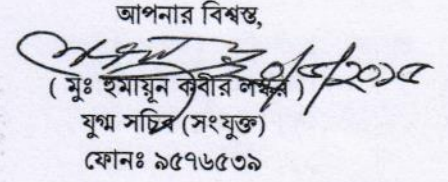 আপনার বিশ্বস্ত,
৪/৫/২০১৫
( মুঃ হুমায়ূন কবীর লস্কর )
যুগ্ম সচিব (সংযুক্ত)
ফোনঃ ৯৫৭৬৫৩৯